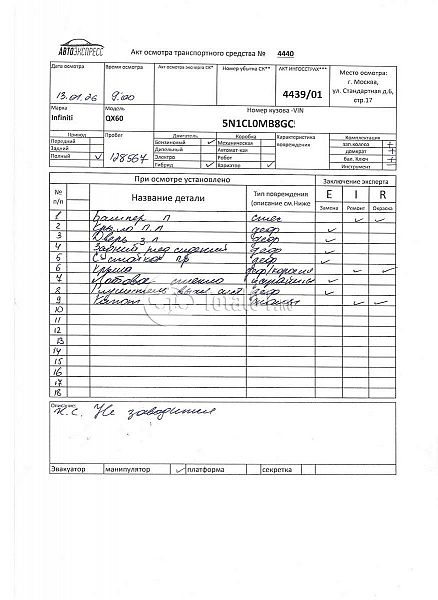 АВТОЭКСПРЕСС
Акт осмотра транспортного средства № 4440
Дата осмотра Время осмотра Акт осмотра эксперта СК* Номер убытка СК** АКТ ИНГОССТРАХ***
Место осмотра:
г. Москва,
ул. Стандартная д.6,
стр.17
13.01.26 9:00 4439/01
Марка Модель Номер кузова -VIN
Infiniti QX60 5N1CL0MB8GC
Привод Пробег Двигатель Коробка Характеристика повреждения Комплектация
Передний Бензиновый Механическая зап.колесо +
Задний Дизельный Автомат-кая домкрат +
Полный 128567 Электро Робот бал. Ключ +
Гибрид Вариатор Инструмент
При осмотре установлено Заключение эксперта
№ п/п Название детали Тип повреждения (описание см.Ниже E I R
Замена Ремонт Окраска
1 Бампер п
2 Крыло п.п деф
3 Дверь з.п деф
4 деф
5 Стойка пр деф
6 Крыша деф/
7 Лобовое стекло
8 деф
9 Капот
10
11
12
13
14
15
16
17
18
Total01.ru
Описание:
Н.С. Не заводится
Эвакуатор манипулятор платформа секретка